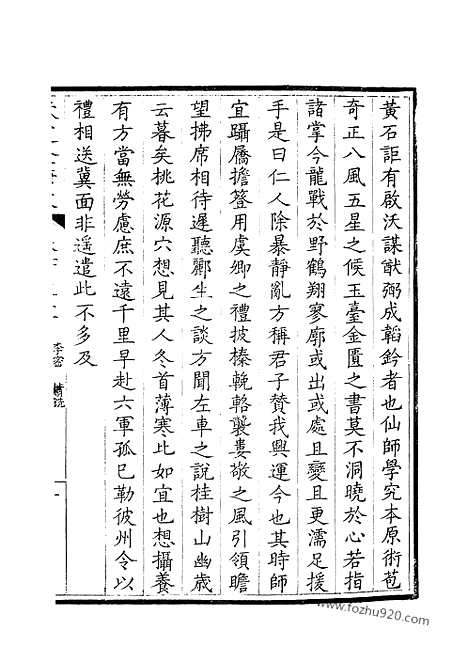 黃石詎有啟沃謀猷弼成韜鈐者也仙師學究本原術苞
奇正八風五星之候玉臺金匱之書莫不洞曉於心若指
諸掌今龍戰於野鶴翔寥廓或出或處且變且更濡足援
手是曰仁人除暴靜亂方稱君子贊我興運今也其時師
宜躡屩擔簦用虞卿之禮披榛輓輅襲婁敬之風引領瞻
望拂席相待遲聽酈生之談方聞左車之說桂樹山幽歲
云暮矣桃花源穴想見其人冬首薄寒比如宜也想攝養
有方當無勞慮庶不遠千里早赴六軍孤已勒彼州令以
禮相送冀面非遥遣此不多及
李密
www.fozhu920.com